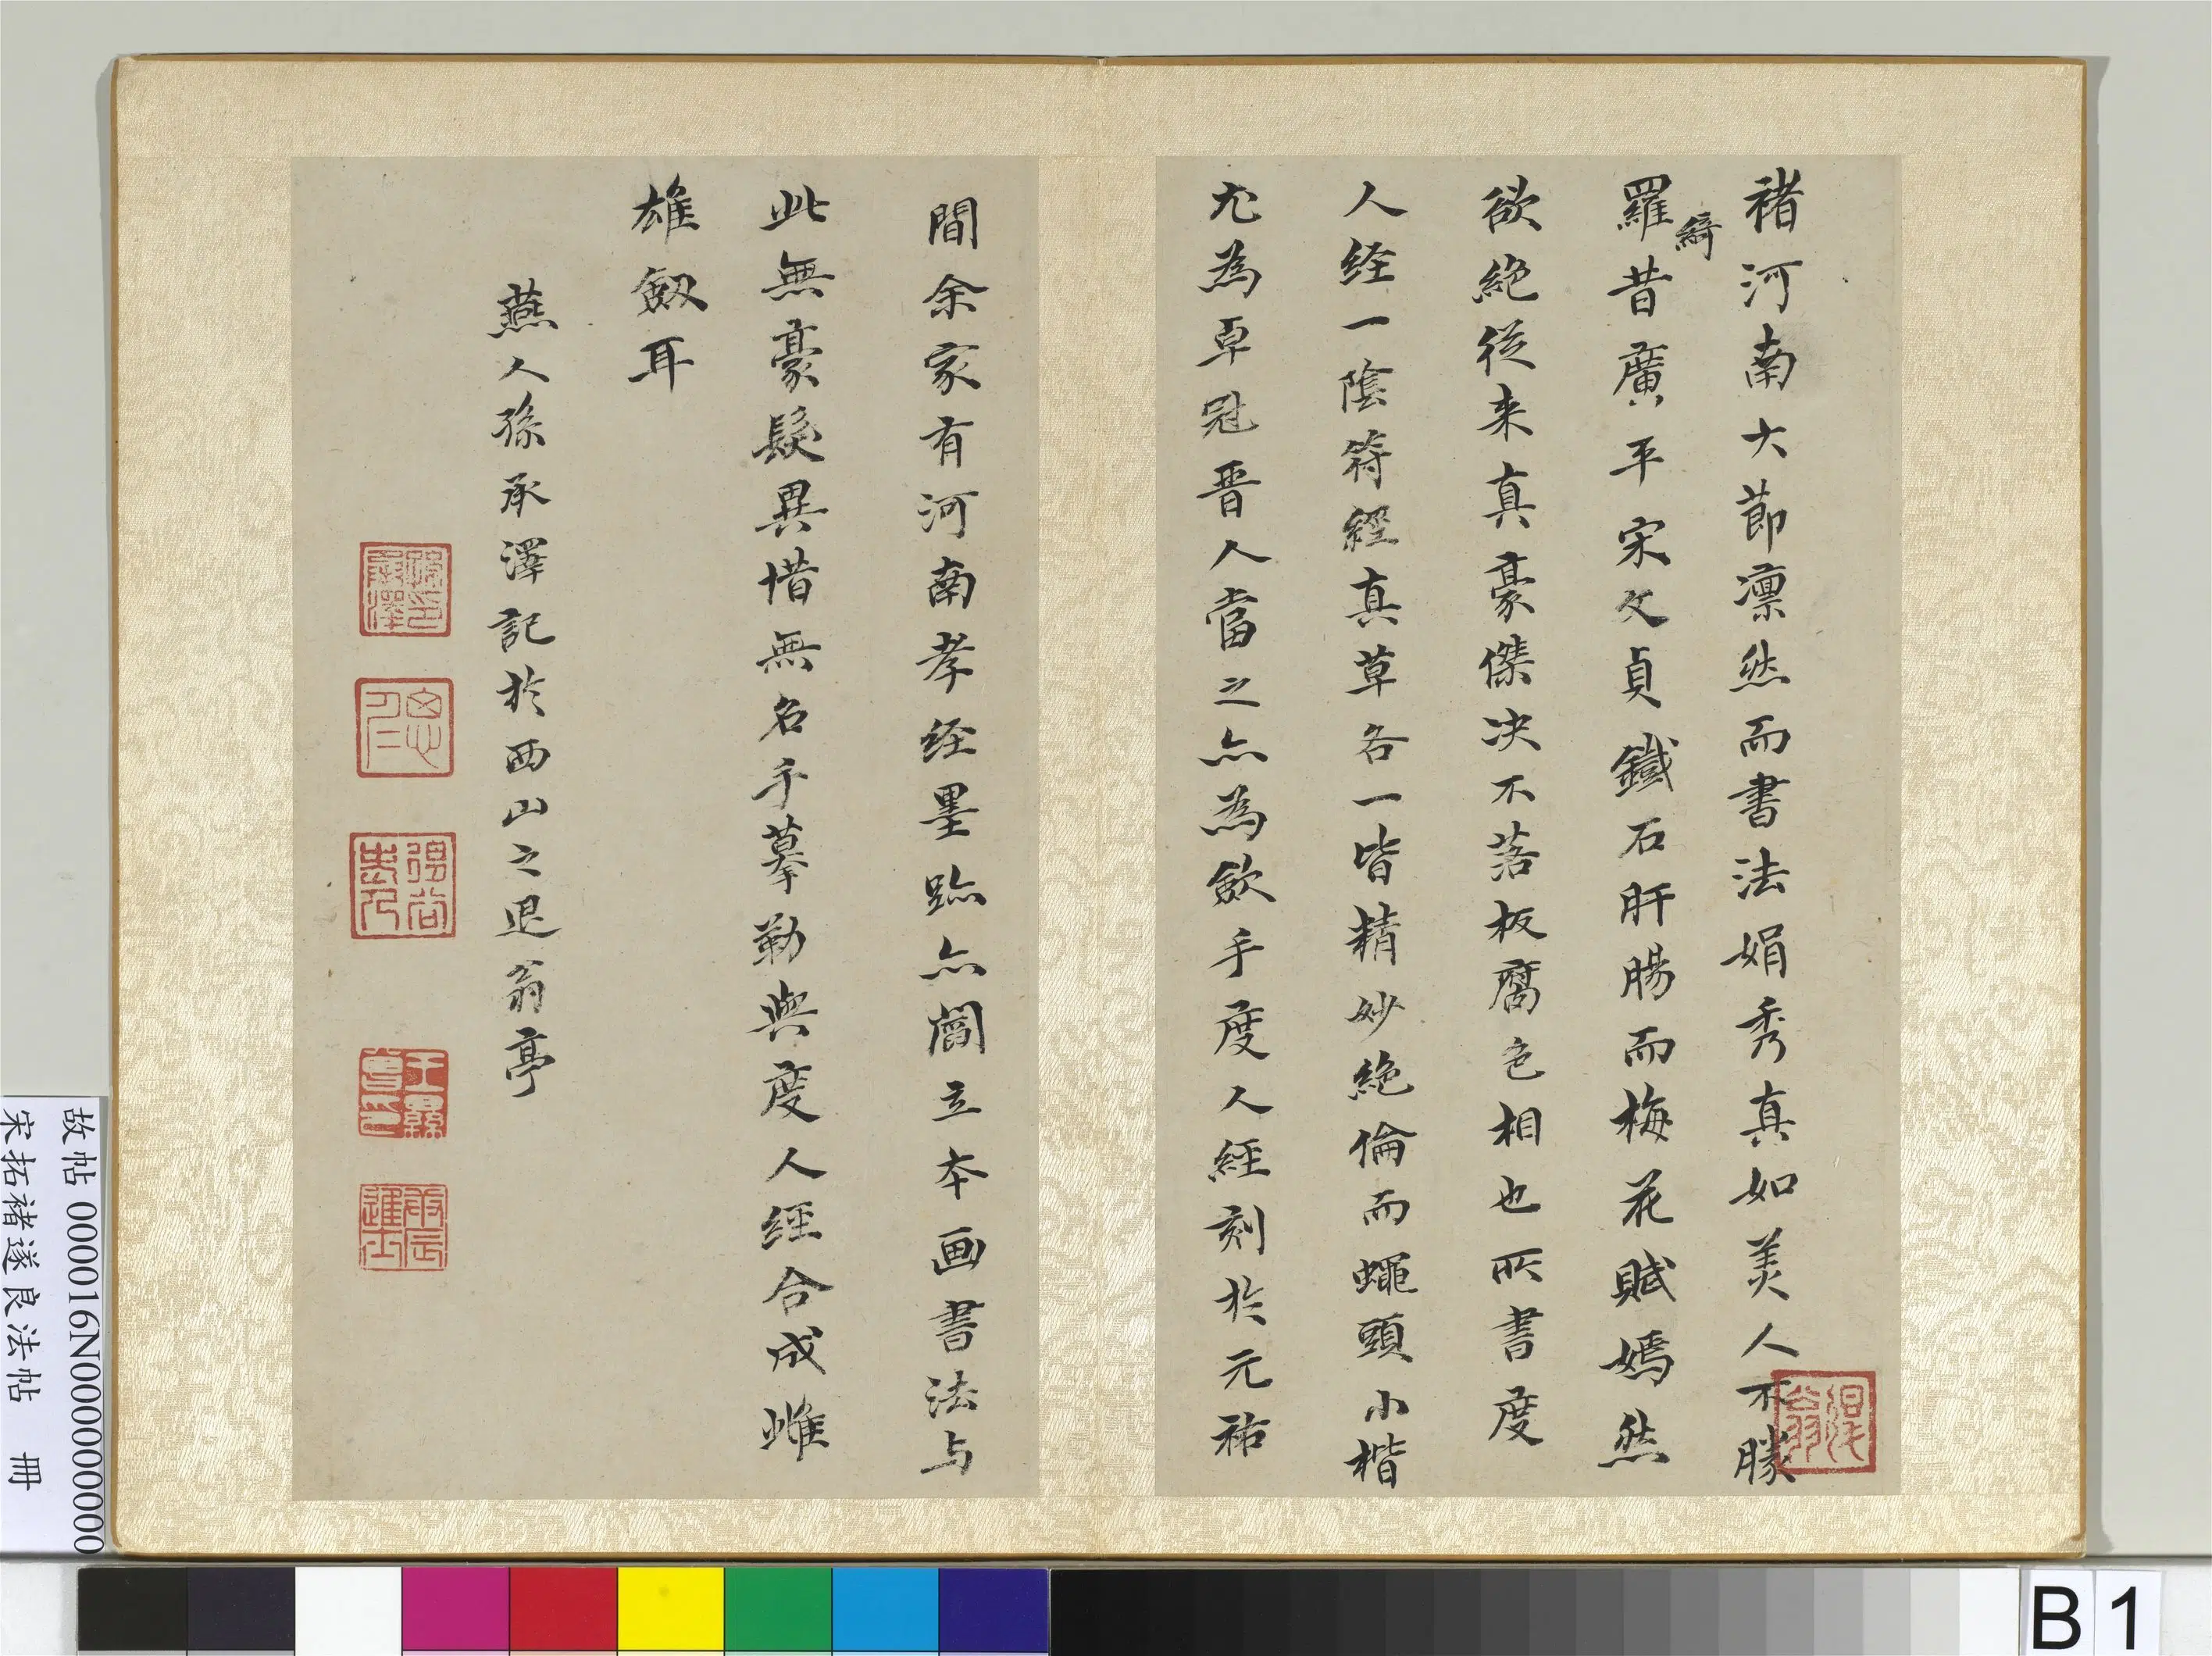 褚河南大節凛然而書法娟秀真如美人不勝
羅綺昔廣平宋文貞鐵石肝腸而梅花賦嫣然
欲絶従来真豪傑决不落板腐色相也所書度
人经一陰符經真草各一皆精妙絶倫而蠅頭小楷
尤為卓冠晋人當之亦為歛手度人經刻於元祐
間余家有河南孝经墨跡亦閻立本画書法与
此無豪髮異惜無名手摹勒與度人經合成雌
雄劔耳
燕人孫承澤記於西山之退翁亭
退翁
孫承澤印
王
故帖 000016N000000000
宋拓褚遂良法帖 冊
B1